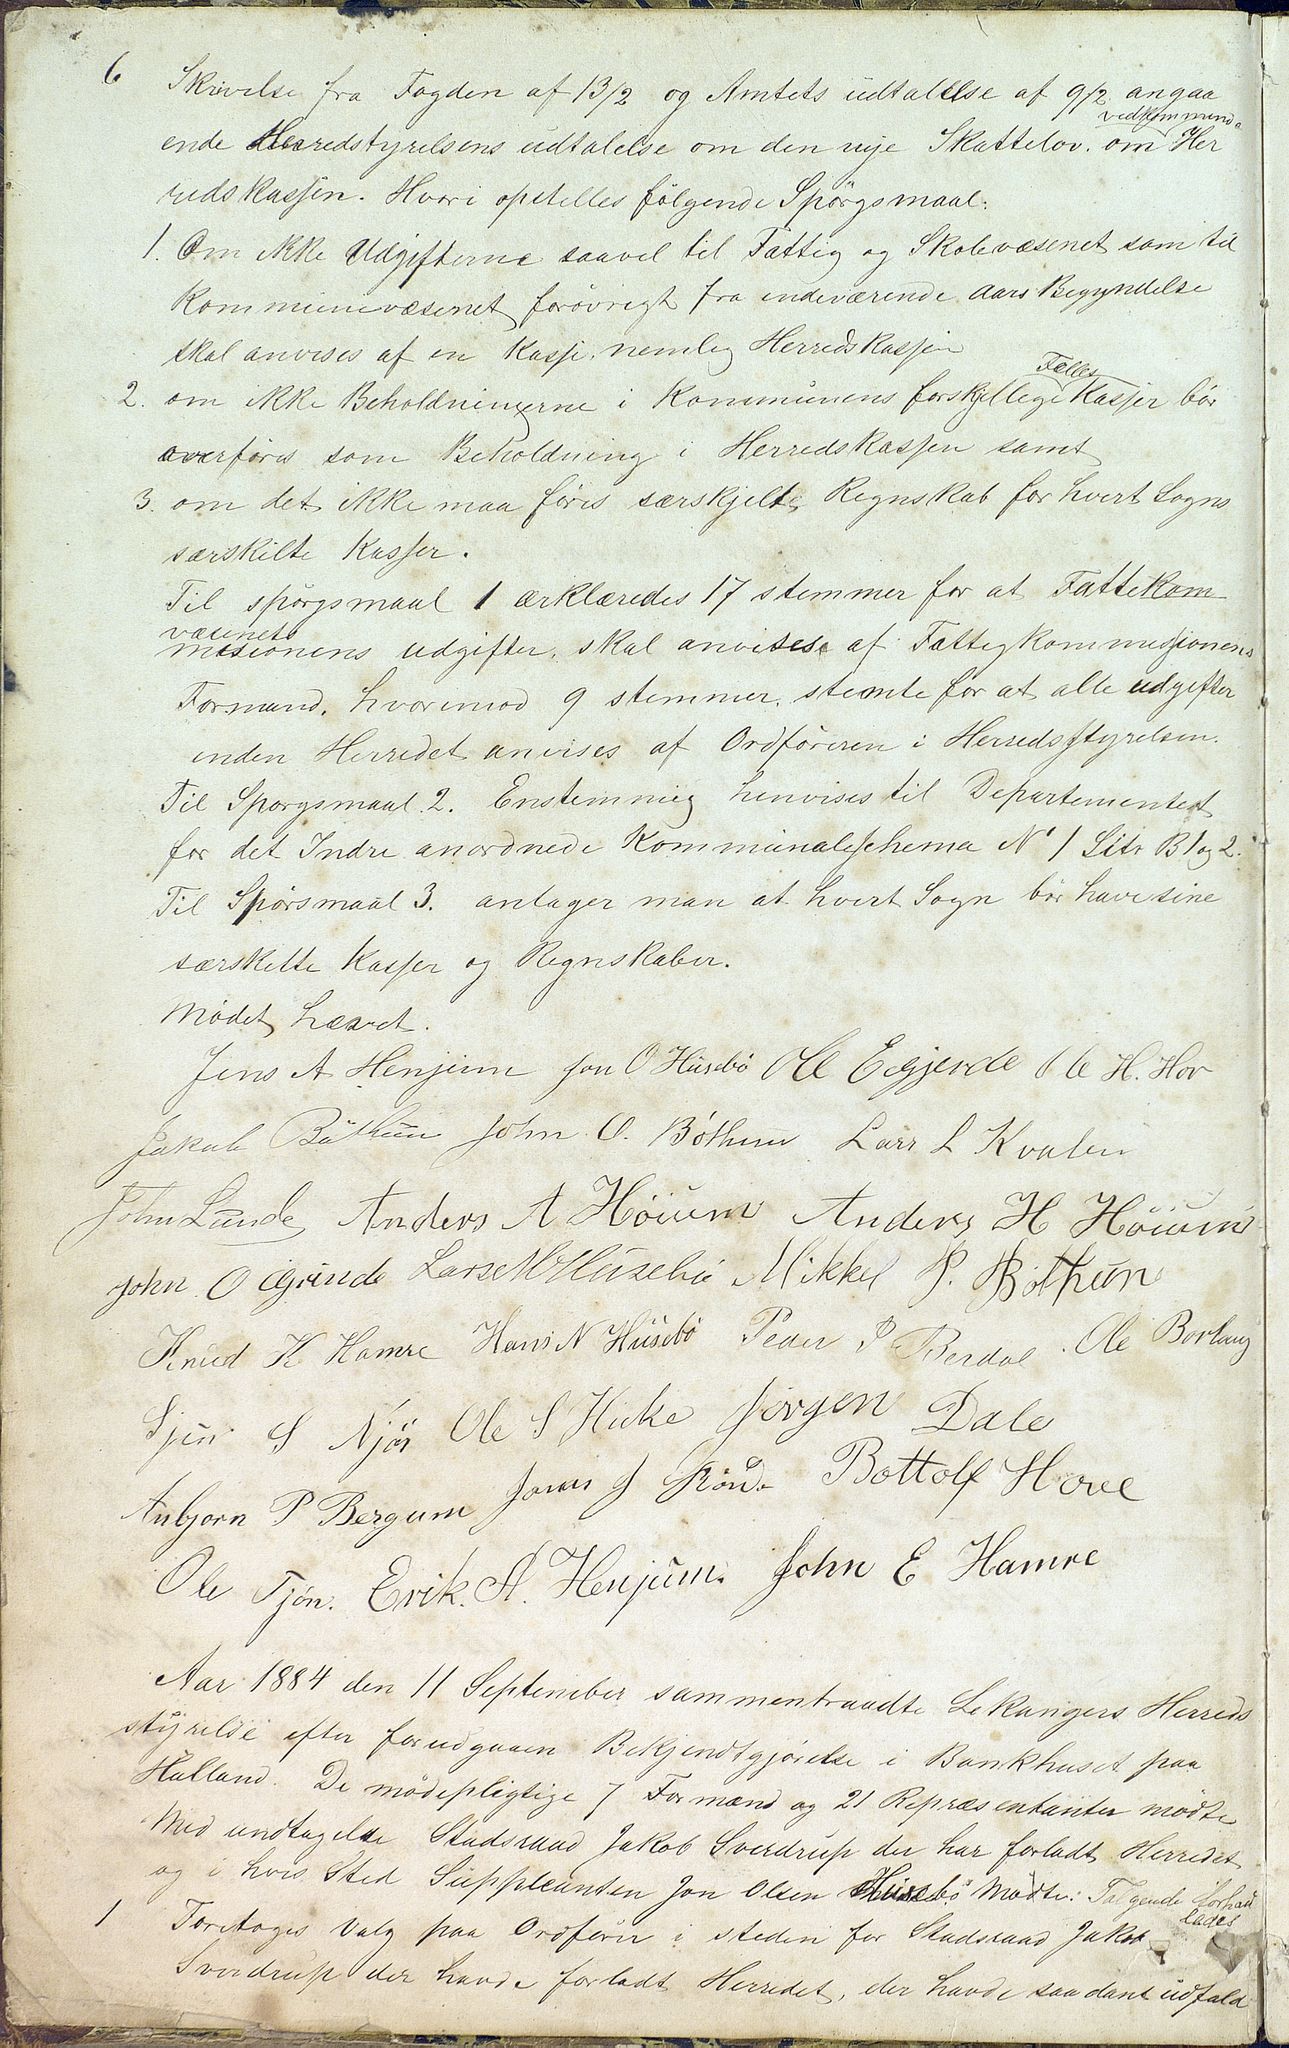 6 Skrivelse fra Fogden af 13/2 og Amtets udtalelse af 9/2 angaa
ende Herredstyrelsens udtalelse om den nye Skattelov. om vedkommende Her
redskassen. Hvori opstelles følgende Spörgsmaal:
1. Om ikke Udgifterne saavel til Fattig og Skolevæsenet som til
Kommunevæsenet forövrigt fra indeværende Aars Begyndelse
skal anvises af en Kasse, nemlig Herredskassen
2. om ikke Beholdningerne i Kommunens forskjellige Fælles Kasser bör
overføres som Beholdning i Herredskassen samt
3. om det ikke maa føres særskjelt Regnskab for hvert Sogns
særskilte Kasser.
Til spörgsmaal 1 erklæredes 17 stemmer for at Fattekom
væsenets
misionens udgifter, skal anvises af Fattigkommissionens
Formand, hvorimod 9 stemmer, stemte for at alle udgifter
inden Herredet anvises af Ordføreren i Herredsstyrelsen.
Til Sporgsmaal 2. Enstemmig henvises til Departementet
for det Indre anordnede Kommunaleschema N 1 Litr B 1 og 2.
Til Spörsmaal 3. antager man at hvert Sogn bör have sine
særskilte Kasser og Regnskaber.
Mødet hævet.
Jens A Henjum Jon O Husebö Ole Eggjende Ole H. Hov
Jakob Böthun John O. Böthun Lars L Kvalen
John Lunde Anders A Höium Anders H Höium
John O Grinde Lars M Husebö Mikkel P. Böthun
Knud K Hamre Hans N Husebö Peder P Berdal. Ole Borlaug
Sjur S Njös Ole S Hicke Jörgen Dale
Anbjorn P Bergum Jon J Bottolf Hove
Ole Tjön. Erik. A. Henjum. John E Hamre
Aar 1884 den 11 September sammentraadte Lekangers Herreds
styrelse efter forudgaaen Bekjendtgjörelse i Bankhuset paa
Hulland. De mödepligtige 7 Formænd og 21 Repræsentanter mødte
Med undtagelse Stadsraad Jakob Sverdrup der har forladt Herredet
og i hvis Sted Suppleanten Jon Olsen Husebö Mødte: Følgende forhan
lades
1 Foretoges Valg paa Ordförer i steden for Stadsraad Jakob
Sverdrup der havde forladt Herredet, der havde saadant udfald